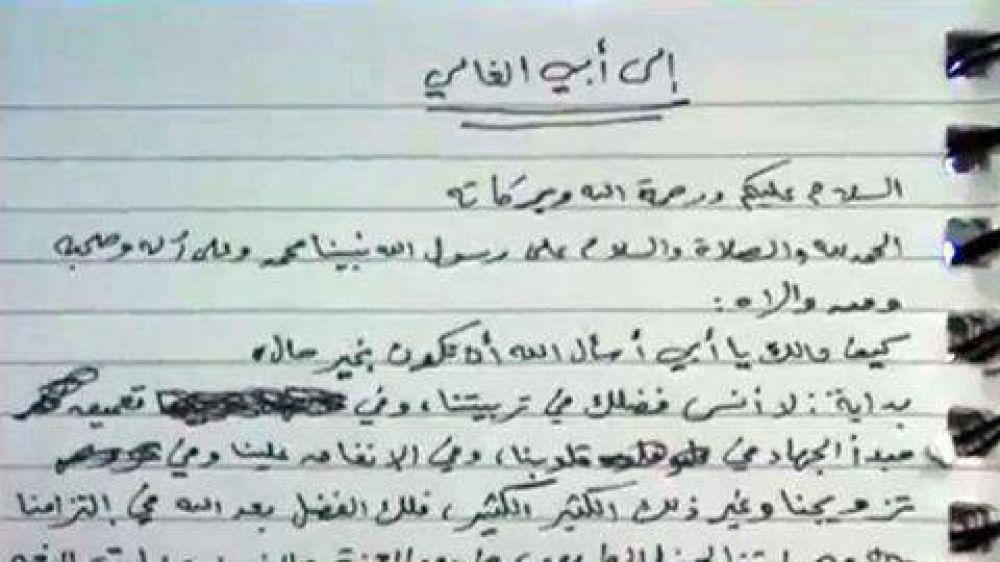 إلى أبي الغالي
السلام عليكم ورحمة الله وبركاته
الحمد لله والصلاة والسلام على رسول الله نبينا محمد وعلى آله وصحبه
ومن والاه :
كيف حالك يا أبي أسأل الله أن تكون بخير حال،
بداية : لا أنسى فضلك في تربيتنا، وفي تعميق
مبدأ الجهاد في قلوبنا، وفي الإنفاق علينا وفي
تزويجنا وغير ذلك الكثير الكثير، فلك الفضل بعد الله في التزامنا